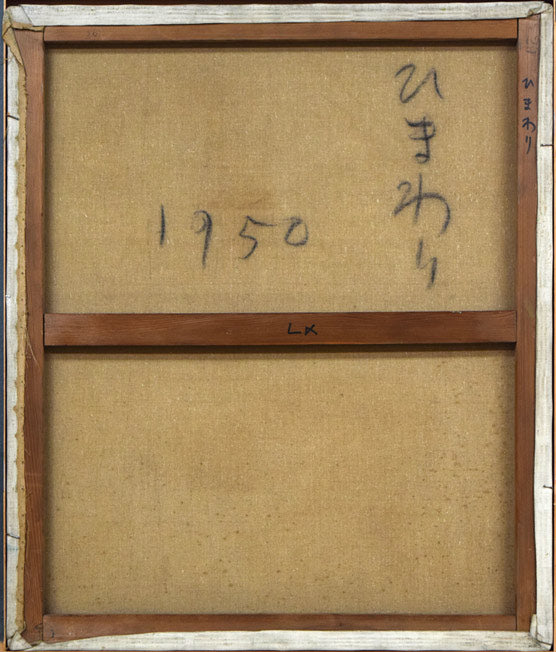 ひまわり
ひまわり
1950